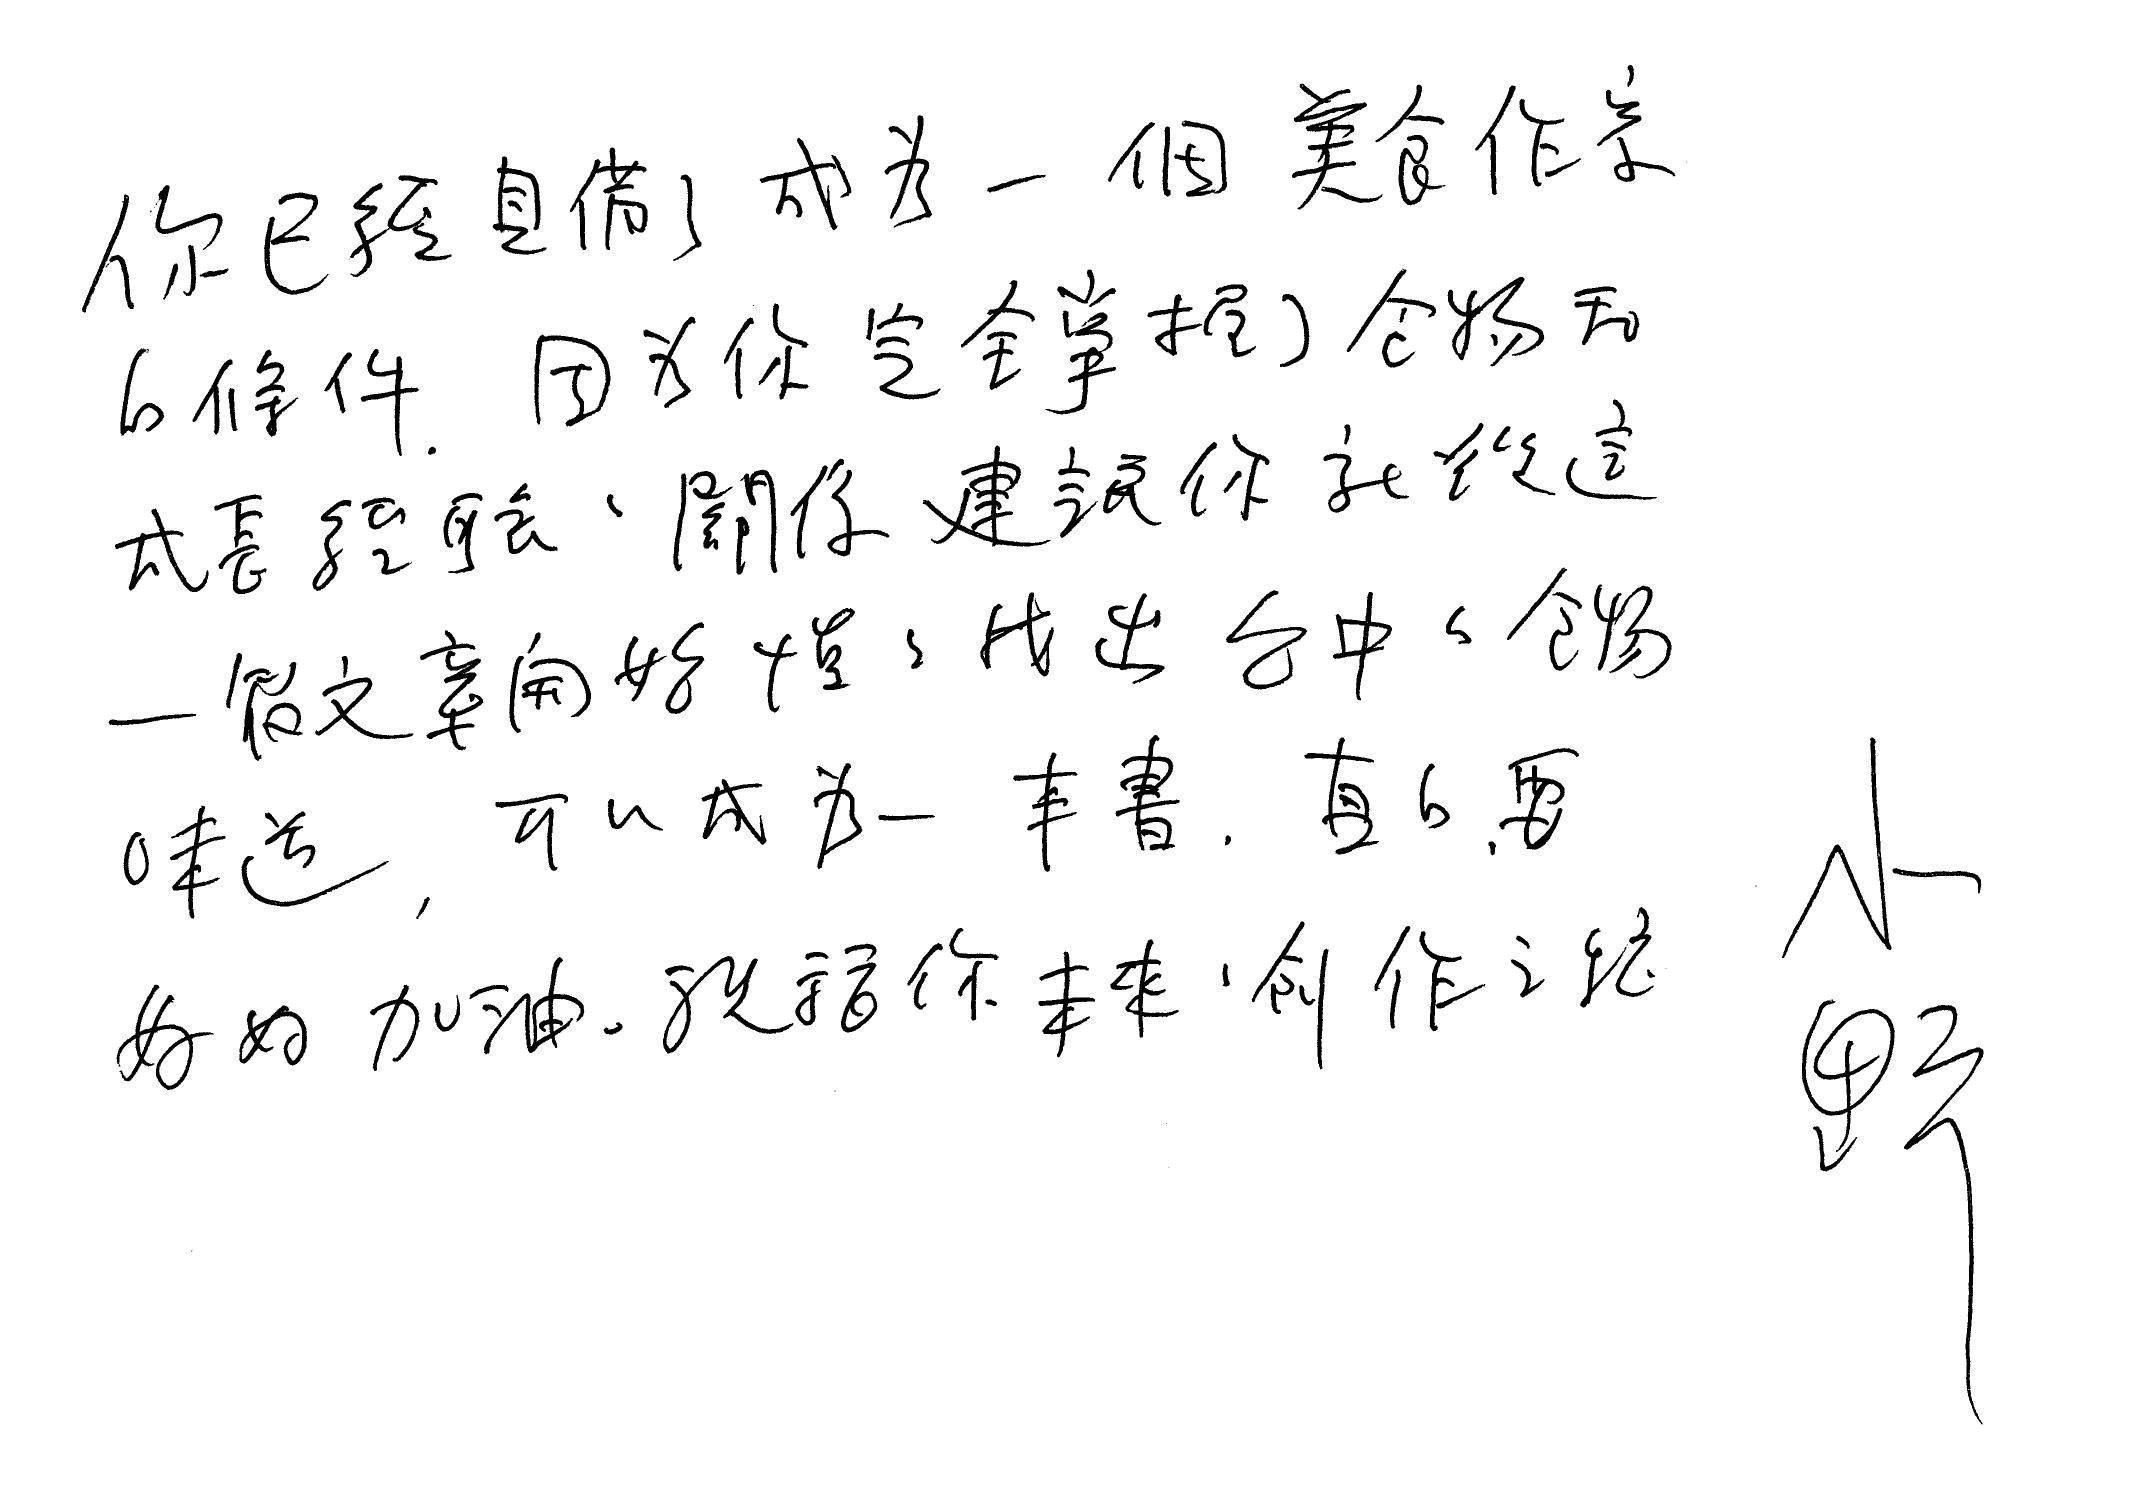 你已經具備了成為一個美食作家
的條件. 因為你完全掌握了食物和
成長經驗、關係 建議你就從這
一篇文章開始 找出台中的食物
味道, 可以成為一本書. 真的要
好好加油. 祝福你未來的創作之路
小野